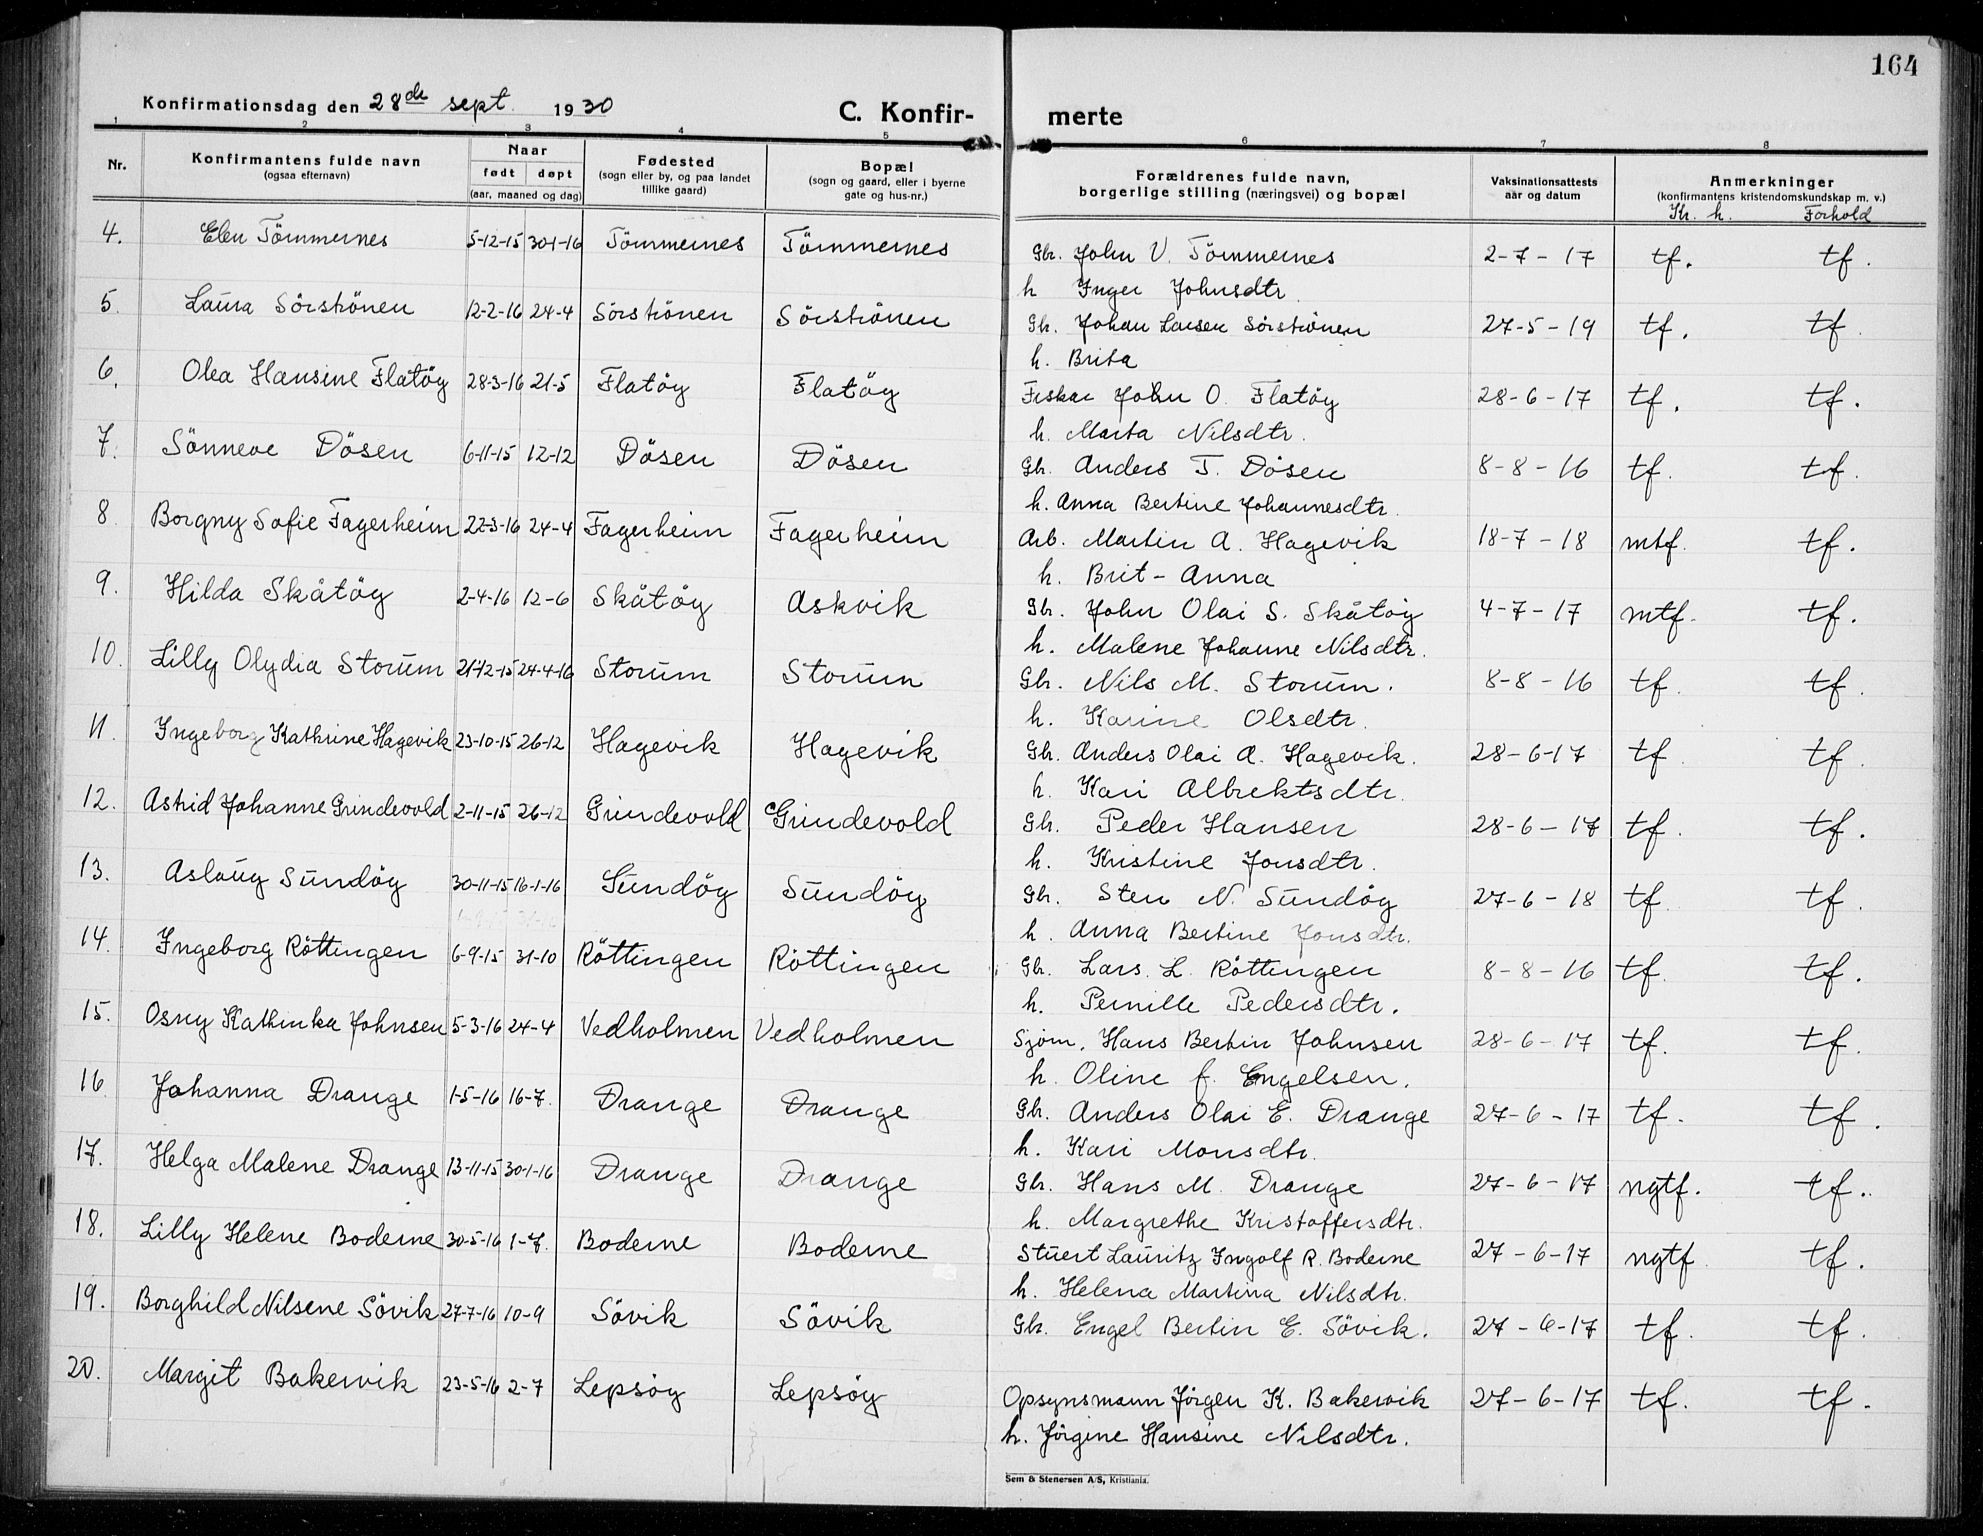 164
Konfirmationsdag den 28de sept. 1930 C. Konfir- merte
1 2 3 4 5 6 7 8
Nr. Konfirmantens fulde navn (ogsaa efternavn) Naar født døpt (aar, maaned og dag) Fødested (sogn eller by, og paa landet tillike gaard) Bopæl (sogn og gaard, eller i byerne gate og hus-nr.) Forældrenes fulde navn, borgerlige stilling (næringsvei) og bopæl Vaksinationsattests aar og datum Anmerkninger (konfirmantens kristendomskundskap m. v.)
Kr. h. Forhold
4. Elen Tömmernes 5-12-15 30-1-16 Tömmernes Tömmernes Gbr. John V. Tömmernes 2-7-17 tf. tf.
h Inger Johnsdtr.
5. Laura Sörströnen 12-2-16 24-4 Sörströnen Sörströnen Gbr. Johan Larsen Sörströnen 27-5-19 tf. tf
h. Brita
6. Olea Hansine Flatöy 28-3-16 21-5 Flatöy Flatöy Fiskar John O. Flatöy 28-6-17 tf. tf.
h. Marta Nilsdtr.
7. Sönneve Dösen 6-11-15 12-12 Dösen Dösen Gbr. Anders T. Dösen 8-8-16 tf. tf.
h. Anna Bertine Johannesdtr.
8 Borgny Sofie Fagerheim 22-3-16 24-4 Fagerheim Fagerheim Arb. Martin A. Hagevik 18-7-18 mtf. tf.
h. Brit-Anna
9. Hilda Skåtöy 2-4-16 12-6 Skåtöy Askvik Gbr. John Olai S. Skåtöy 4-7-17 mtf. tf.
h. Malene Johanne Nilsdtr.
10. Lilly Olydia Storum 21-12-15 24-4-16 Storum Storum Gbr. Nils M. Storum. 8-8-16 tf. tf.
h. Karine Olsdtr.
11. Ingeborg Kathrine Hagevik 23-10-15 26-12 Hagevik Hagevik Gbr. Anders Olai A. Hagevik. 28-6-17 tf tf.
h. Kari Albrektsdtr.
12. Astrid Johanne Grindevold 2-11-15 26-12 Grindevold Grindevold Gbr. Peder Hansen 28-6-17 tf. tf.
h. Kristine Jonsdtr.
13. Aslaug Sundöy 30-11-15 16-1-16 Sundöy Sundöy Gbr. Sten N. Sundöy 27-6-18 tf. tf.
h. Anna Bertine Jonsdtr.
14. Ingeborg Röttingen 6-9-15 31-10 Röttingen Röttingen Gbr. Lars L. Röttingen 8-8-16 tf. tf.
h. Pernille Pedersdtr.
15. Osny Kathinka Johnsen 5-3-16 24-4 Vedholmen Vedholmen Sjøm. Hans Bertin Johnsen 28-6-17 tf. tf.
h. Oline f. Engelsen.
16 Johanna Drange 1-5-16 16-7. Drange Drange Gbr. Anders Olai E. Drange 27-6-17 tf. tf.
h. Kari Monsdtr.
17. Helga Malene Drange 13-11-15 30-1-16 Drange Drange Gbr. Hans M. Drange 27-6-17 ngtf. tf.
h. Margrethe Kristoffersdtr.
18. Lilly Helene Boderne 30-5-16 1-7. Boderne Boderne Stuert Lauritz Ingolf R. Boderne 27-6-17 ngtf tf.
h. Helena Martina Nilsdtr.
19. Borghild Nilsene Sövik 27-7-16 10-9 Sövik Sövik Gbr. Engel Bertin E. Sövik. 27-6-17 tf. tf.
20. Margit Bakervik 23-5-16 2-7 Lepsöy Lepsöy Opsynsmann Jörgen K. Bakervik 27-6-17 tf. tf.
h. Jörgine Hansine Nilsdtr.
Sem & Stenersen A/S, Kristiania.